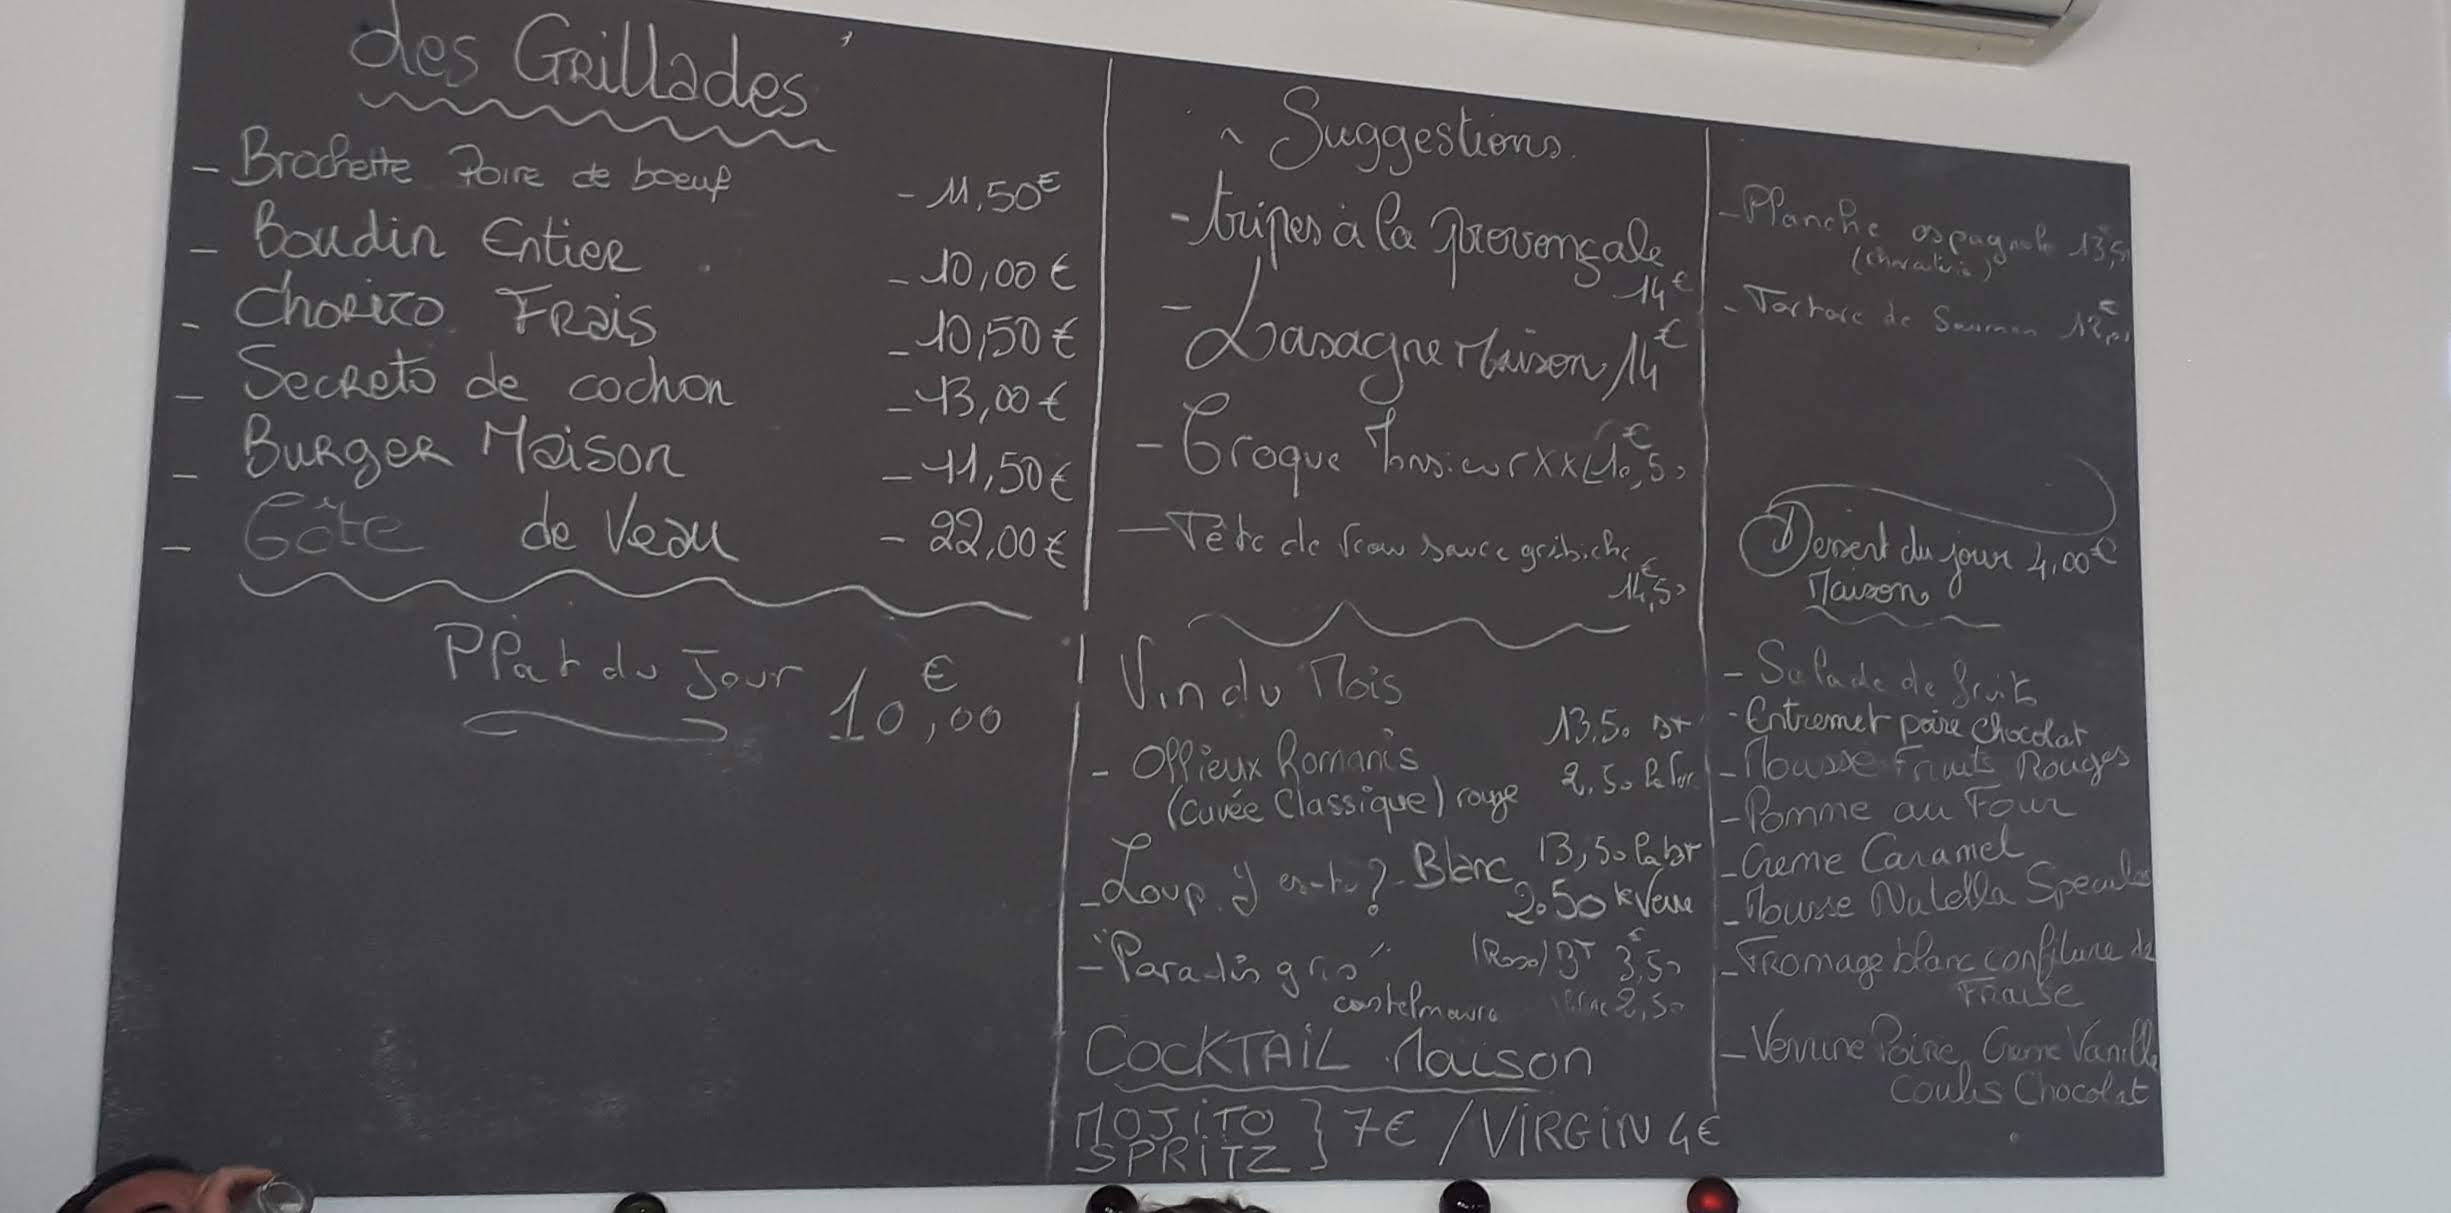 des Grillades
- Brochette Poire de boeuf - 11,50€
- Boudin Entier - 10,00€
- Chorizo Frais - 10,50€
- Secreto de cochon - 13,00€
- Burger Maison - 11,50€
- Côte de Veau - 22,00€
Plat du Jour 10,00€
Suggestions
- tripes à la provençale
14€
- Lasagne Maison 14€
- Croque Monsieur XXL 10,50€
- Tête de veau sauce gribiche
14,50€
Vin du Mois
13,50 BT
- Ollieux Romanis
2,50 le
(Cuvée Classique) rouge
- Loup. y es-tu? - Blanc 13,50 la bt
2.50 le Verre
- "Paradis gris" (Rosé) BT 3,50€
castelmaure 2,50
COCKTAIL Maison
MOJITO
SPRITZ } 7€ / VIRGIN 4€
- Planche espagnole 13,5
- Tartare de Saumon
Dessert du jour 4,00€
Maison
- Salade de fruits
- Entremet poire chocolat
- Mousse Fruits Rouges
- Pomme au Four
- Creme Caramel
- Mousse Nutella Speculos
- Fromage blanc confiture de
Fraise
- Verrine Poire Creme Vanille
Coulis Chocolat